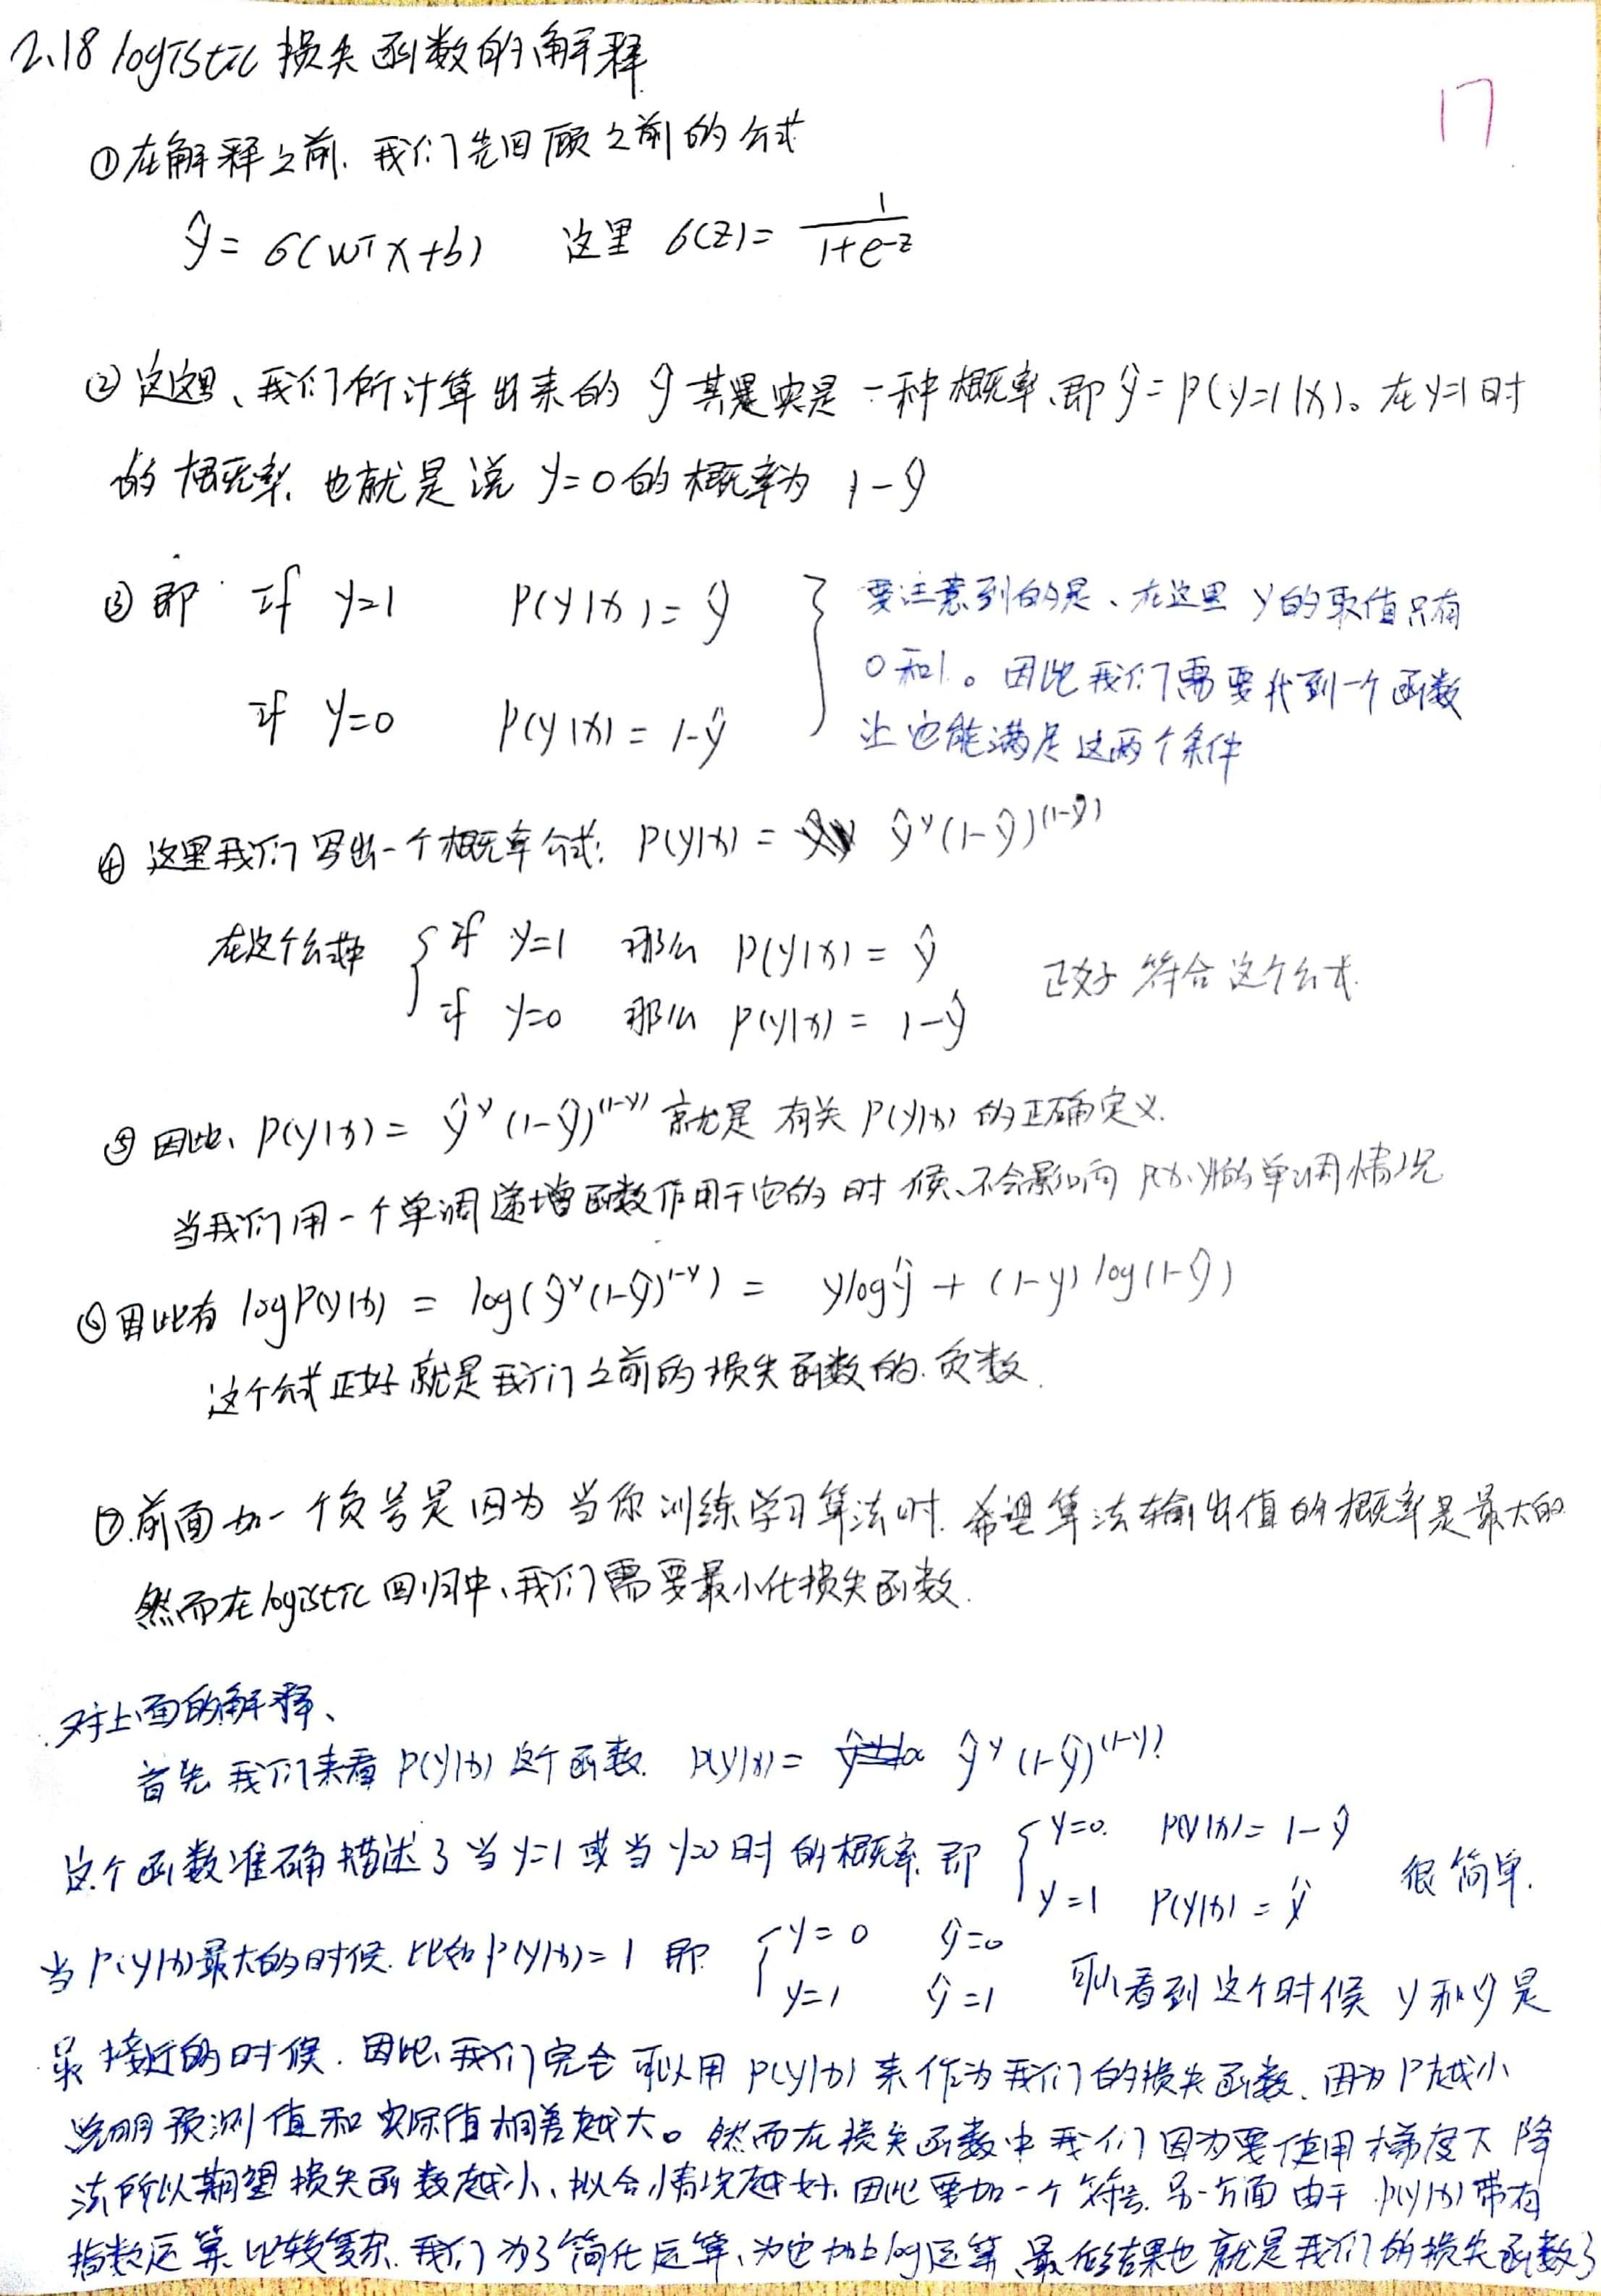 2.18 logistic 损失函数的解释
17
①在解释之前. 我们先回顾之前的公式
ŷ = σ(wᵀx+b) 这里 σ(z) = 1/(1+e^-z)
② 这里、我们所计算出来的 ŷ 其实是一种概率、即 ŷ = p(y=1|x)。在y=1时
的概率. 也就是说 y=0的概率为 1-ŷ
③ 即 if y=1 p(y|x) = ŷ
if y=0 p(y|x) = 1-ŷ
要注意到的是、在这里 y的取值只有
0和1。因此我们需要找到一个函数
让它能满足这两个条件
④ 这里我们写出一个概率公式: p(y|x) = ŷ^y (1-ŷ)^(1-ŷ)
在这个公式中 { if y=1 那么 p(y|x) = ŷ
if y=0 那么 p(y|x) = 1-ŷ
正好符合这个公式.
⑤ 因此、p(y|x) = ŷ^y (1-ŷ)^(1-y) 就是 有关 p(y|x) 的正确定义.
当我们用一个单调递增函数作用于它的时候、不会影响 的单调情况
⑥因此有 log p(y|x) = log(ŷ^y (1-ŷ)^1-y) = ylogŷ + (1-y) log(1-ŷ)
这个公式正好就是我们之前的损失函数的负数.
⑦.前面加一个负号是因为当你训练学习算法时. 希望算法输出值的概率是最大的
然而在logistic回归中、我们需要最小化损失函数.
对上面的解释、
首先 我们来看 p(y|x) 这个函数. p(y|x) = ŷ^y (1-ŷ)^(1-y)
这个函数准确描述了当y=1或当y=0时的概率. 即 { y=0. p(y|x) = 1-ŷ
y=1 p(y|x) = ŷ
很简单.
当 p(y|x)最大的时候. 比如 p(y|x)=1 即 { y=0 ŷ=0
y=1 ŷ=1
可以看到这个时候 y和ŷ是
最接近的时候. 因此、我们完全可以用 p(y|x) 来作为我们的损失函数、因为 P越小
说明预测值和实际值相差越大。然而在损失函数中我们因为要使用梯度下降
法所以期望损失函数越小、拟合情况越好. 因此要加一个符号. 另一方面由于 p(y|x) 带有
指数运算.比较复杂. 我们为了简化运算、为它加上log运算、最后结果也就是我们的损失函数了